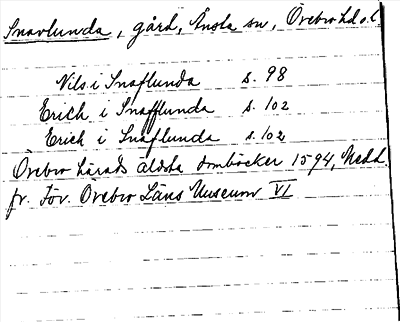 Snavlunda, gård, Ånsta sn, Örebro hd o. l.
Nils i Snaflunda s. 98
Erich i Snafflunda s. 102
Erich i Snaflunda s. 102
Örebro härads äldsta domböcker 1594, Medd.
fr. För. Örebro Läns Museum VI